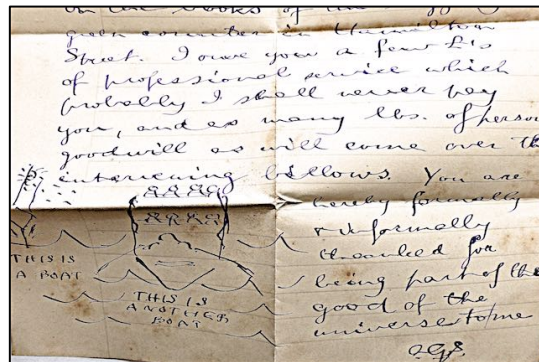 green counter in Hamilton
Street. I owe you a few £'s
of professional service which
probably I shall never pay
you, and as many lbs. of person
goodwill as will come over the
intervening billows. You are
hereby formally
& informally
thanked for
being part of the
good of the
universe to me
THIS IS
A BOAT
THIS IS
ANOTHER
BOAT